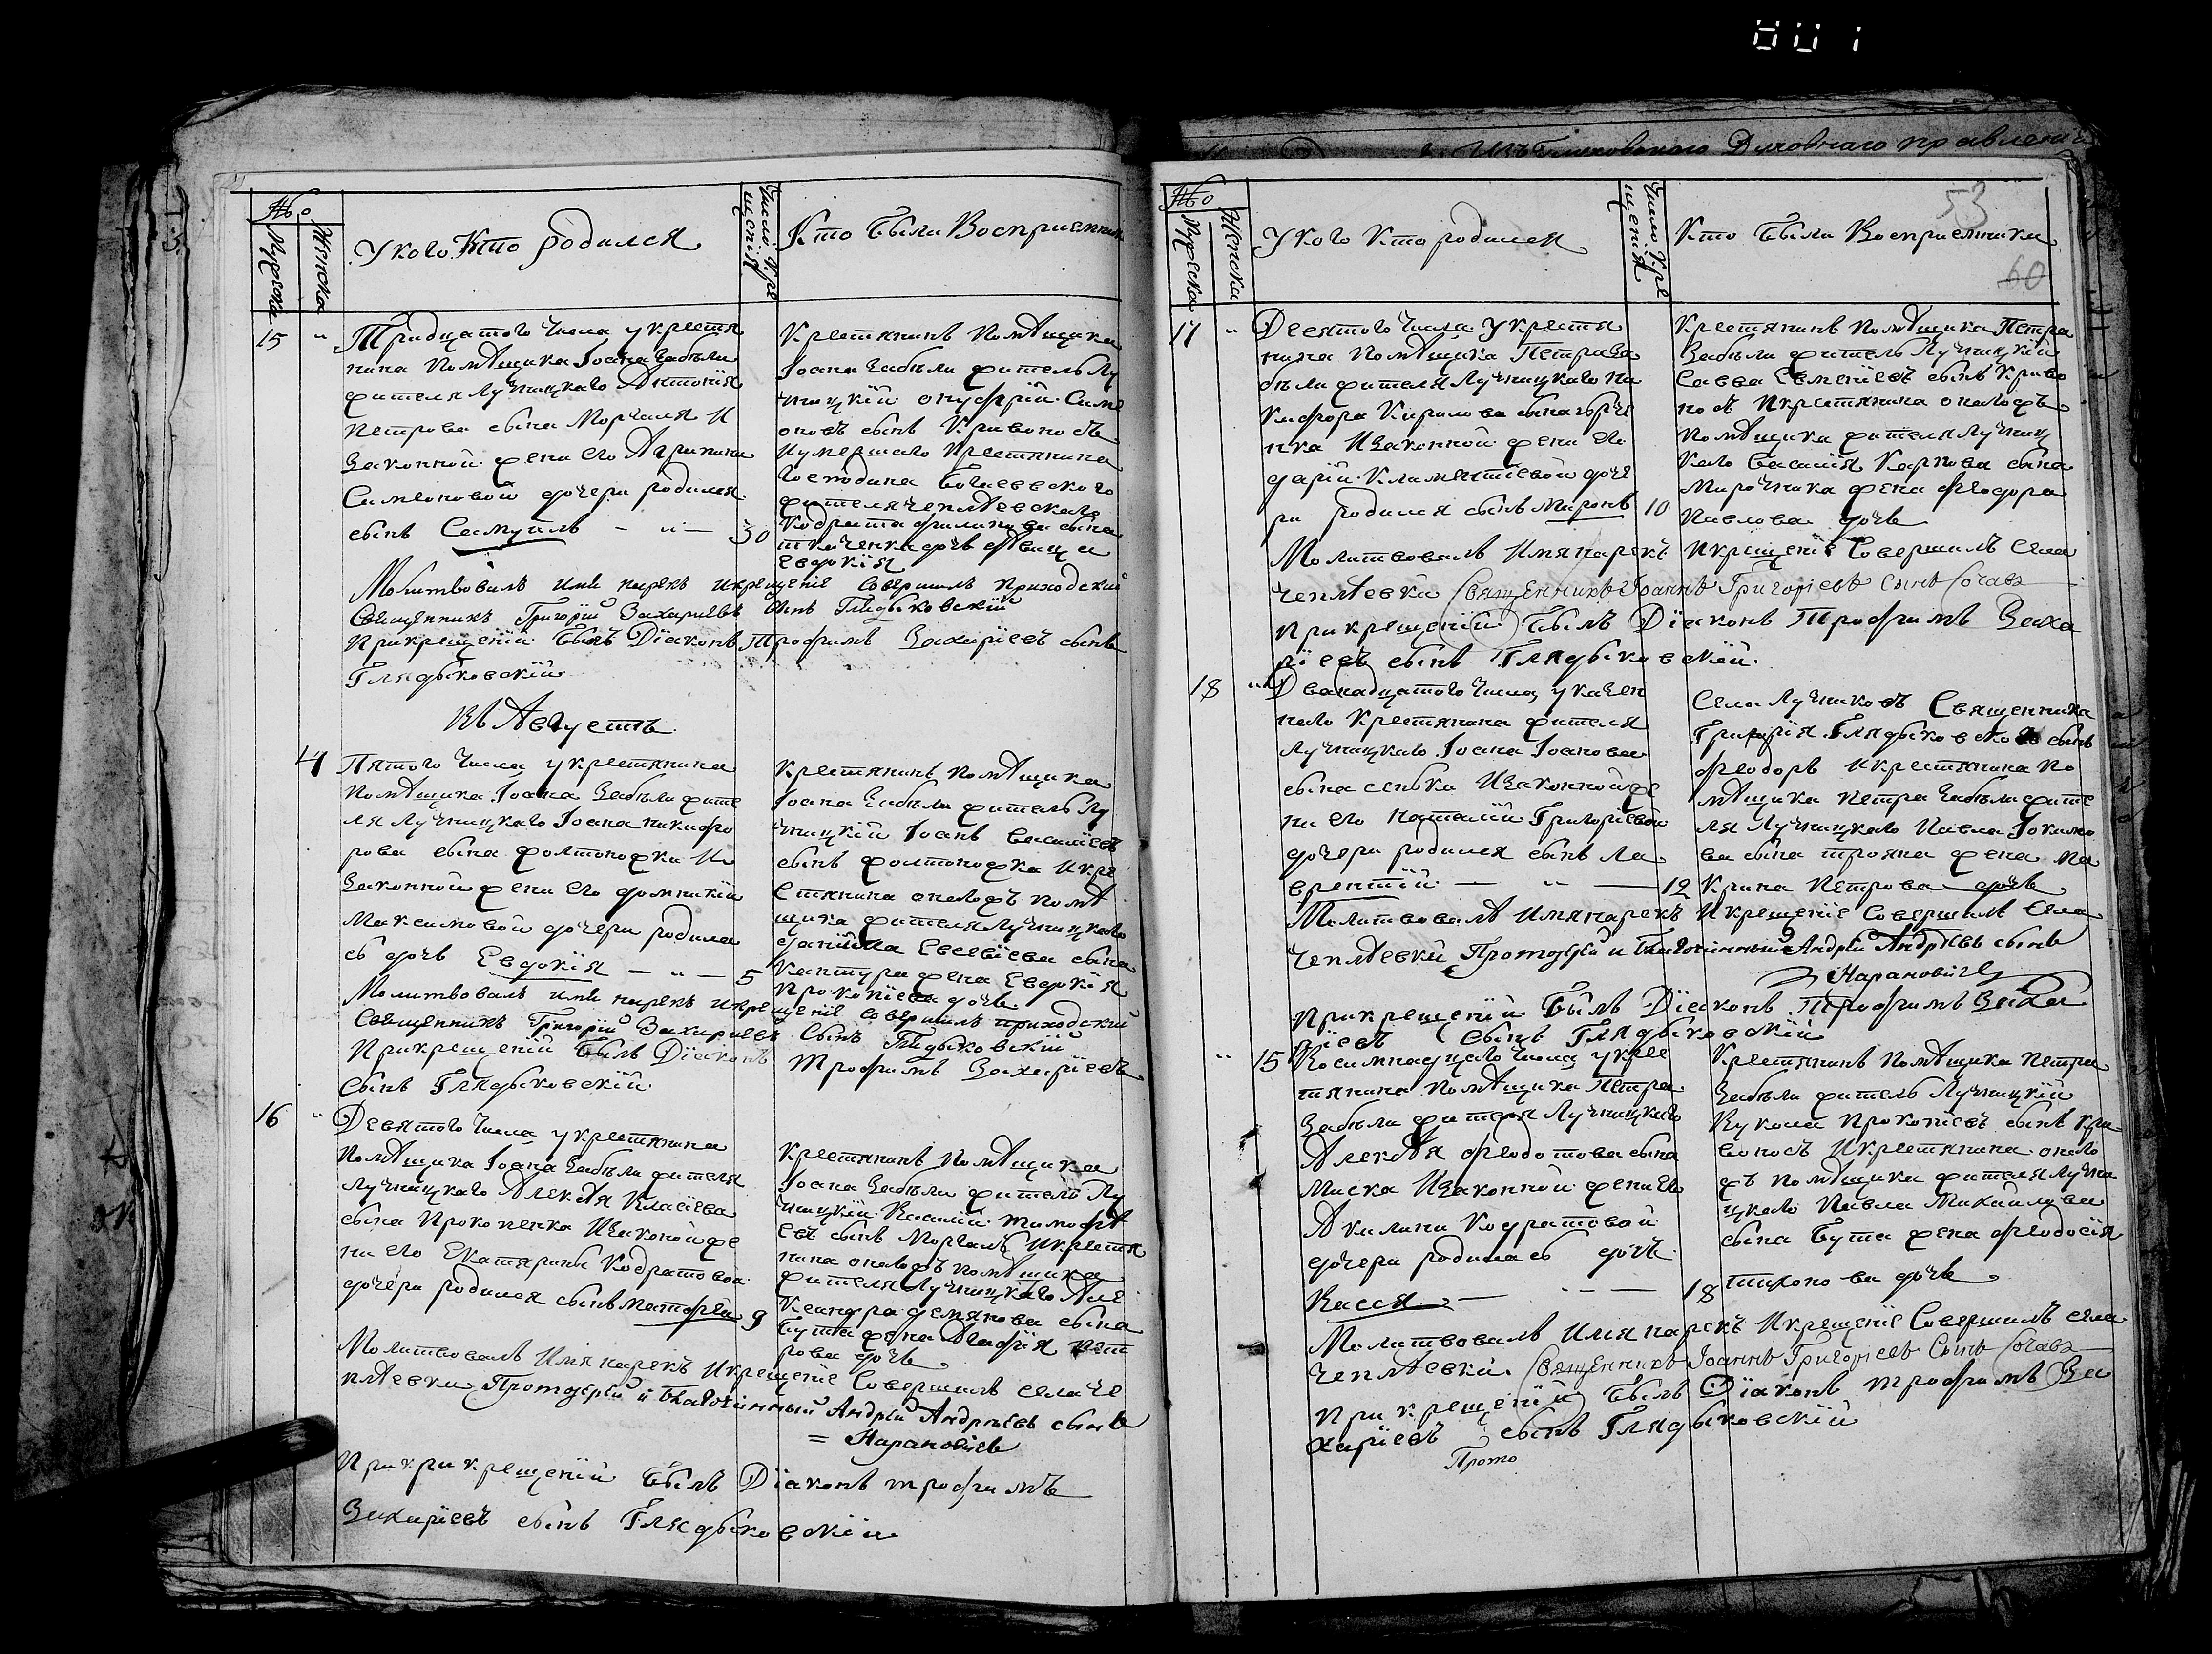 №
Мужеска
Женска
У кого Кто родился
Число Кре
щенія
Кто были Восприемники
15
Тридцатого числа у крестя
нина помѣщика Іоана Забѣли
жителя Лучницкаго Антонія
Петрова сына Морчиля и
Законной жени его Агрипини
Симеоновой дочери родился
сынъ Самуилъ 30
Крестянинъ помѣщика
Іоана Забѣли житель Лу
чницкій Онуфрій Симе
оновъ сынъ Кривоносъ
и умершаго крестянина
Господина
жителя чеплѣевскаго
Кодрата Филипова сына
Ткаченка дочь дѣвица
Евдокія
Молитвовалъ имя нарекъ и крещеніе совершилъ приходскій
Священникъ Григорій Захаріевъ сынъ Глядыковскій
При крещеніи былъ Діаконъ Трофимъ Захаріевъ сынъ
Глядыковскій
Въ Августѣ
14
Пятого числа у крестянина
помѣщика Іоана Забѣли жите
ля Лучницкаго Іоана Никифо
рова сына Жолтоножки и
Законной жени его Домникіи
Максимовой дочери родила
сь дочь Евдокія 5
Крестянинъ помѣщика
Іоана Забѣли житель Лу
чницкій Іоанъ Василіевъ
сынъ Жолтоножка и кре
стянина
щика жителя Лучницкаго
Даніила Евсевіева сына
Кантури жена Евдокія
Прокопіева дочь
Молитвовалъ имя нарекъ и крещеніе совершилъ приходскій
Священникъ Григорій Захаріевъ Сынъ Глядыковскій
При крещеніи былъ Діаконъ Трофимъ Захаріевъ
Сынъ Глядыковскій
16
Девятого числа у крестянина
помѣщика Іоана Забѣли жителя
Лучницкаго Алексѣя Власіева
сына Прокопенка и Законой же
ни его Екатерини Кодратовой
дочери родился сынъ Матфей 9
Крестянинъ помѣщика
Іоана Забѣли житель Лу
чницкій Василій Тимофѣ
евъ сынъ Морчаль и крестя
нина
жителя Лучницкаго Але
ксандра Демянова сына
Бута жена Агафія Пет
рова дочь
Молитвовалъ Имя нарекъ и крещеніе совершилъ села Че
плѣевки Протоіерій и Благочинный Андрей Андрѣевъ сынъ
= Нарановичъ
При при крещеніи былъ Діаконъ Трофимъ
Захаріевъ сынъ Глядыковскій
53
60
№
Мужеска
Женска
У кого Кто родился
Число Кре
щенія
Кто были Восприемники
17
Десятого числа у крестя
нина помѣщика Петра За
бѣли жителя Лучницкаго Ни
кифора Кирилова сына
нка и Законной жени его
Даріи Климентіевой доче
ри родился сынъ Миронъ 10
Крестянинъ помѣщика Петра
Забѣли житель Лучницкій
Савва Семеніевъ сынъ Криво
носъ и крестянина
помѣщика жителя Лучниц
каго Василія Карпова сына
Мирочника жена Феодора
Павлова дочь
Молитвовалъ Имя нарекъ и крещеніе совершилъ села
Чеплѣевки Священникъ Іоаннъ Григоріевъ Сынъ
При крещеніи былъ Діаконъ Трофимъ Заха
ріевъ сынъ Глядыковскій
18
Дванадцатого числа у казен
наго крестянина жителя
Лучницкаго Іоана Іоанова
сына Сенка и Законной же
ни его Наталіи Григоріевой
дочери родился сынъ Ла
врентій 12
Села Лучниковъ Священника
Григорія Глядыковскаго сынъ
Феодоръ и крестянина по
мѣщика Петра Забѣли жите
ля Лучницкаго Павла Іокимо
ва сына Трояна жена Ма
крина Петрова дочь
Молитвовалъ Имя нарекъ и крещеніе совершилъ села
Чеплѣевки Протоіерій и Благочинный Андрей Андрѣевъ сынъ
Нарановичъ
При крещеніи былъ Діаконъ Трофимъ Заха
ріевъ Сынъ Глядыковскій
15
Восимнадцаго числа у крес
тянина помѣщика Петра
Забѣли жителя Лучницкаго
Алексѣя Феодотова сына
Миска и Законной жени его
Акилини Кодратовой
дочери родилась дочь
Васся 18
Крестянинъ помѣщика Петра
Забѣли житель Лучницкій
Вукола Прокопіевъ сынъ Кри
воносъ и крестянина
помѣщика жителя Лучни
цкаго Павла Михайлова
сына Бута жена Феодосія
Тихонова дочь
Молитвовалъ Имя нарекъ и крещеніе совершилъ села
Чеплѣевки Священникъ Іоаннъ Григоріевъ Сынъ
При крещеніи былъ Діаконъ Трофимъ За
харіевъ сынъ Глядыковскій
Прото